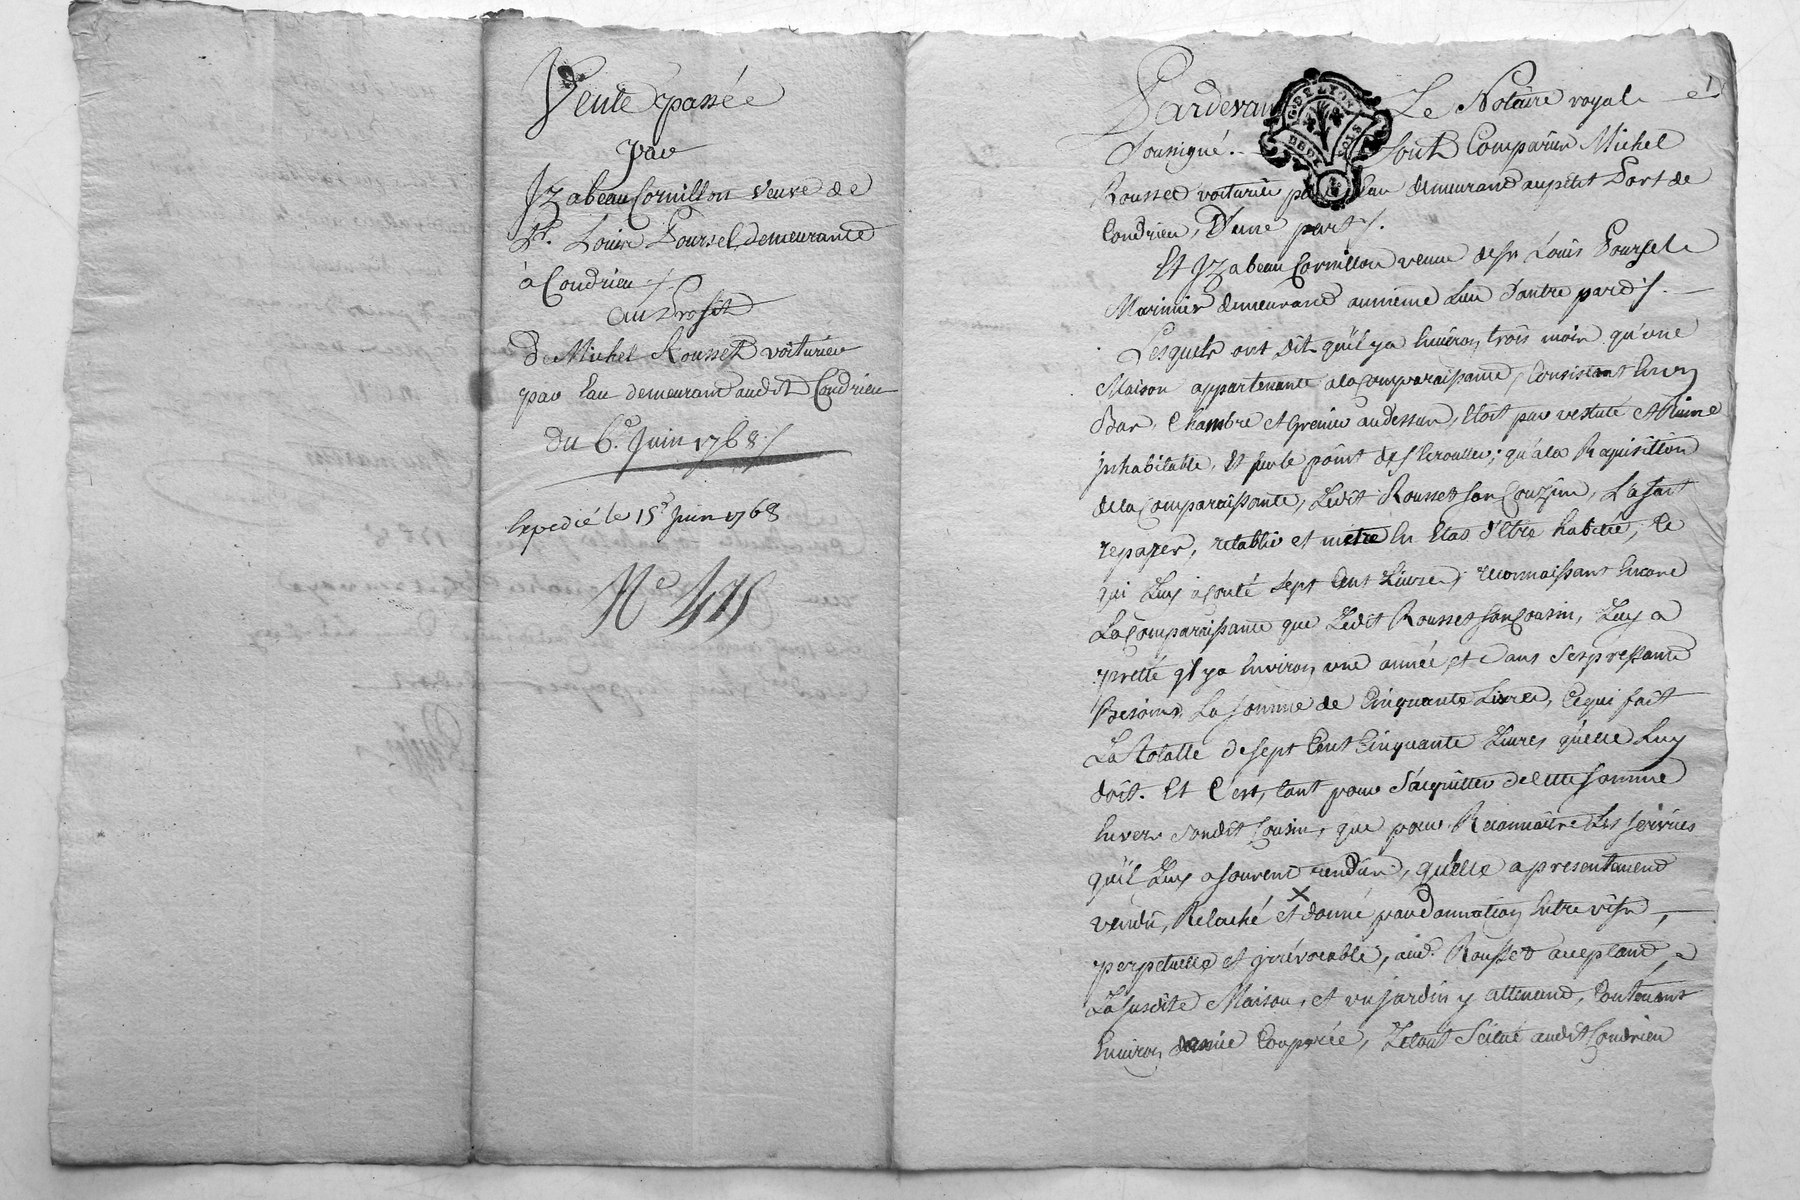 Vente passée
par
Izabeau Cornillon veuve de
Sr. Louis Poursel, demeurante
à Condrieu /
au Profit
de Michel Rousset voiturier
par Eau demeurant audit Condrieu
du 6e Juin 1768 /
Expedié le 15e Juin 1768
No 475
1
Pardevant Le Notaire royal
soussigné. Sont Comparus Michel
Rousset voiturier par Eau demeurant au petit Port de
Condrieu, D'une part /.
Et Izabeau Cornillon veuve de Sr Louis Poursel
Marinier demeurand au même Lieu D'autre part /.
G. DE LYON
Lesquels ont Dit qu'il y a Environ trois mois qu'une
Maison appartenante a la Comparaissante, Consistant En un
Bas, Chambre et Grenier au dessus, Etoit par vestuté et Ruine
Inhabitable, Et sur le point de s'Ecrouller; qu'a la Requisition
de la Comparaissante, Ledit Rousset son Couzin, L'a fait
reparer, retablir et metre En Etas d'Etre habitée, Ce
qui Luy a Couté sept Cent Livres; reconnaissant Encore
La Comparaissante que Ledit Rousset son Cousin, Luy a
pretté Il y a Environ une année et Dans Ses pressants
Besoins, La somme de Cinquante Livres, Ce qui fait
La totalle de sept Cent Cinquante Livres qu'elle Luy
doit. Et C'est, tant pour S'acquitter de Cette somme
Envers Sondit Cousin, que pour Reconnaitre Les services
qu'il Luy a souvent rendus, qu'elle a presentement
vendu, Relaché et donné par Donnation Entre vifs,
perpetuelle et irrévocable, aud. Rousset acceptant,
La susdite Maison, et un jardin y attenand, Contenant
Environ demie Couprée, Le tout Scitué audit Condrieu